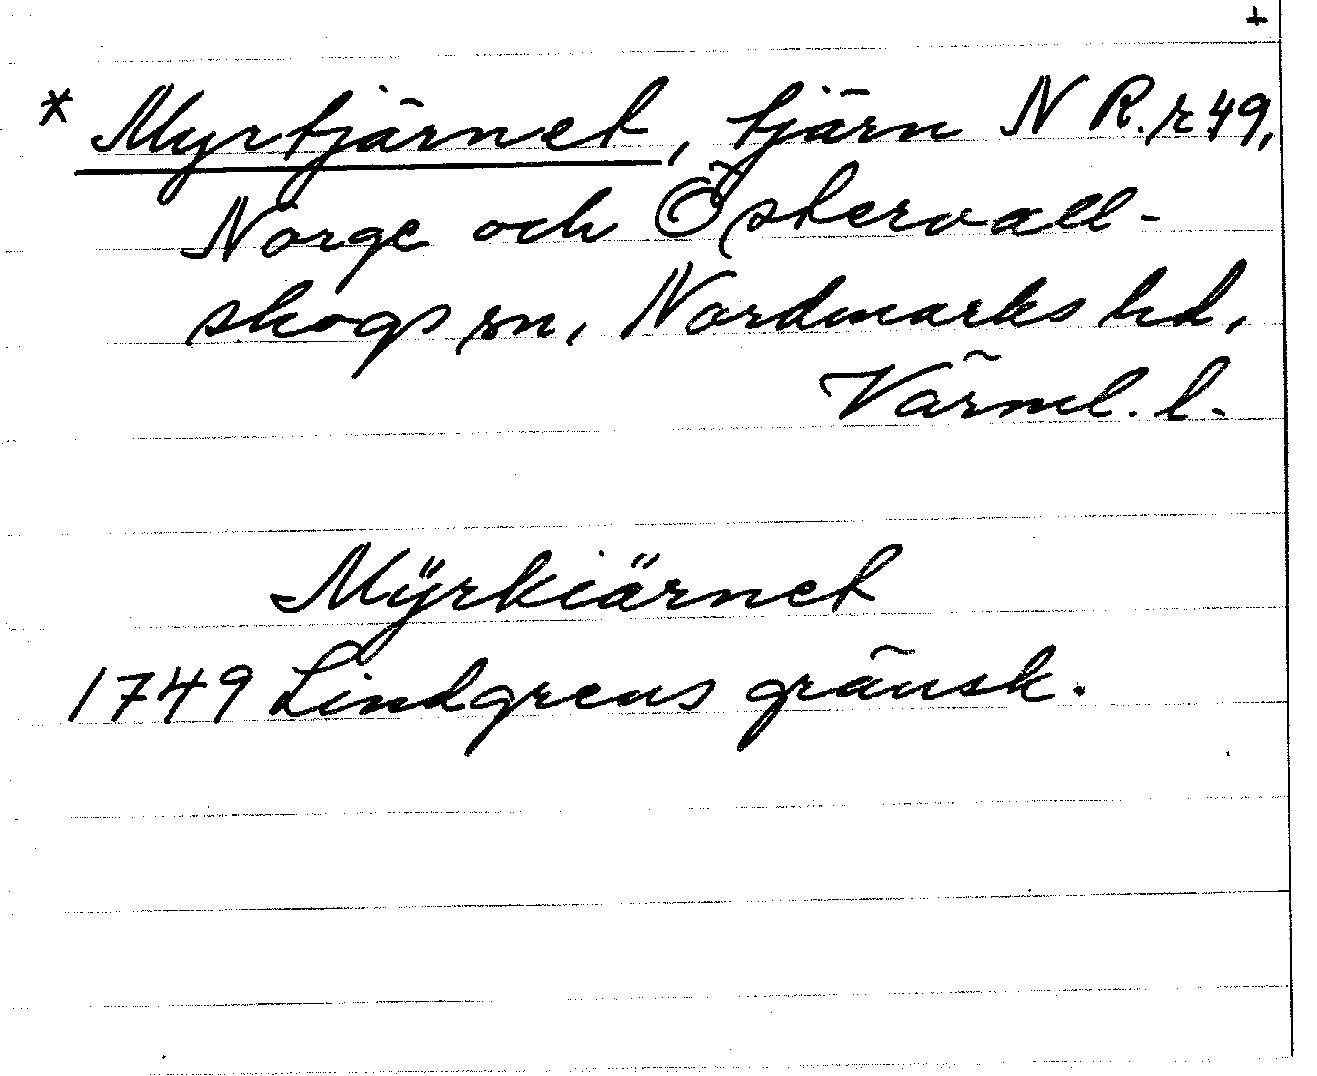 +
* Myrtjärnet, tjärn N R.r 49,
Norge och Östervall-
skogs sn, Nordmarks hd,
Värml. l.
Mÿrkiärnet
1749 Lindgrens gränsk.